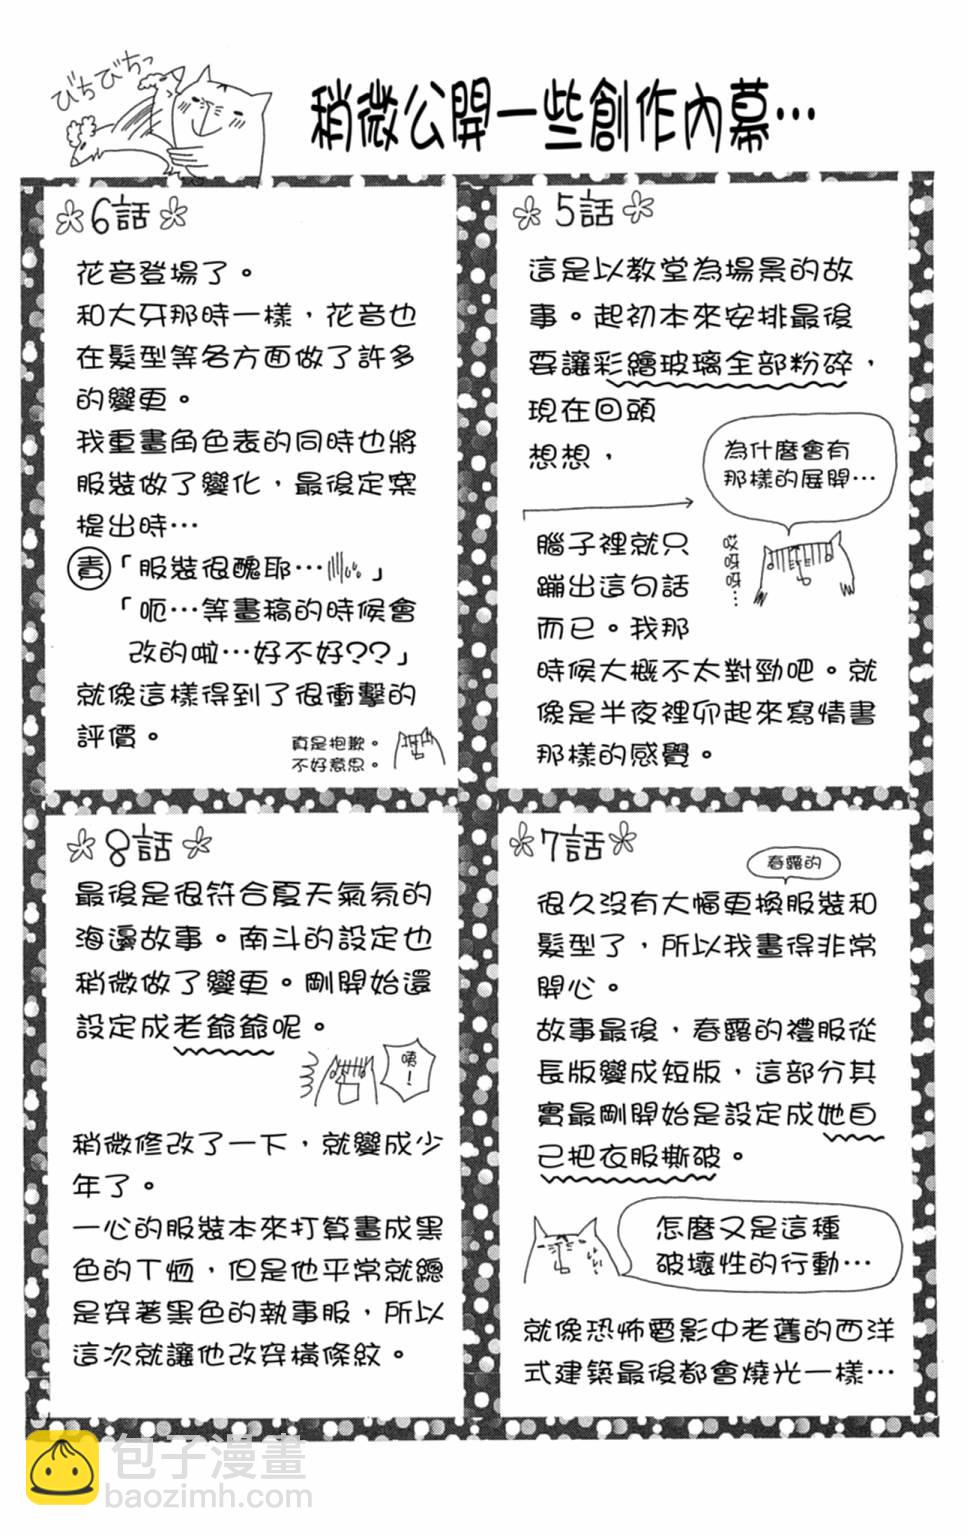 びちびちっ
稍微公開一些創作內幕…
5話
這是以教堂為場景的故
事。起初本來安排最後
要讓彩繪玻璃全部粉碎，
現在回頭
想想，
為什麼會有
那樣的展開…
哎呀呀…
腦子裡就只
蹦出這句話
而已。我那
時候大概不太對勁吧。就
像是半夜裡卯起來寫情書
那樣的感覺。
6話
花音登場了。
和大牙那時一樣，花音也
在髮型等各方面做了許多
的變更。
我重畫角色表的同時也將
服裝做了變化，最後定案
提出時…
責「服裝很醜耶…」
「呃…等畫稿的時候會
改的啦…好不好??」
就像這樣得到了很衝擊的
評價。
真是抱歉。
不好意思。
7話
春露的
很久沒有大幅更換服裝和
髮型了，所以我畫得非常
開心。
故事最後，春露的禮服從
長版變成短版，這部分其
實最剛開始是設定成她自
己把衣服撕破。
怎麼又是這種
破壞性的行動…
就像恐怖電影中老舊的西洋
式建築最後都會燒光一樣…
8話
最後是很符合夏天氣氛的
海邊故事。南斗的設定也
稍微做了變更。剛開始還
設定成老爺爺呢。
咦!
稍微修改了一下，就變成少
年了。
一心的服裝本來打算畫成黑
色的T恤，但是他平常就總
是穿著黑色的執事服，所以
這次就讓他改穿橫條紋。
包子漫畫
baozimh.com